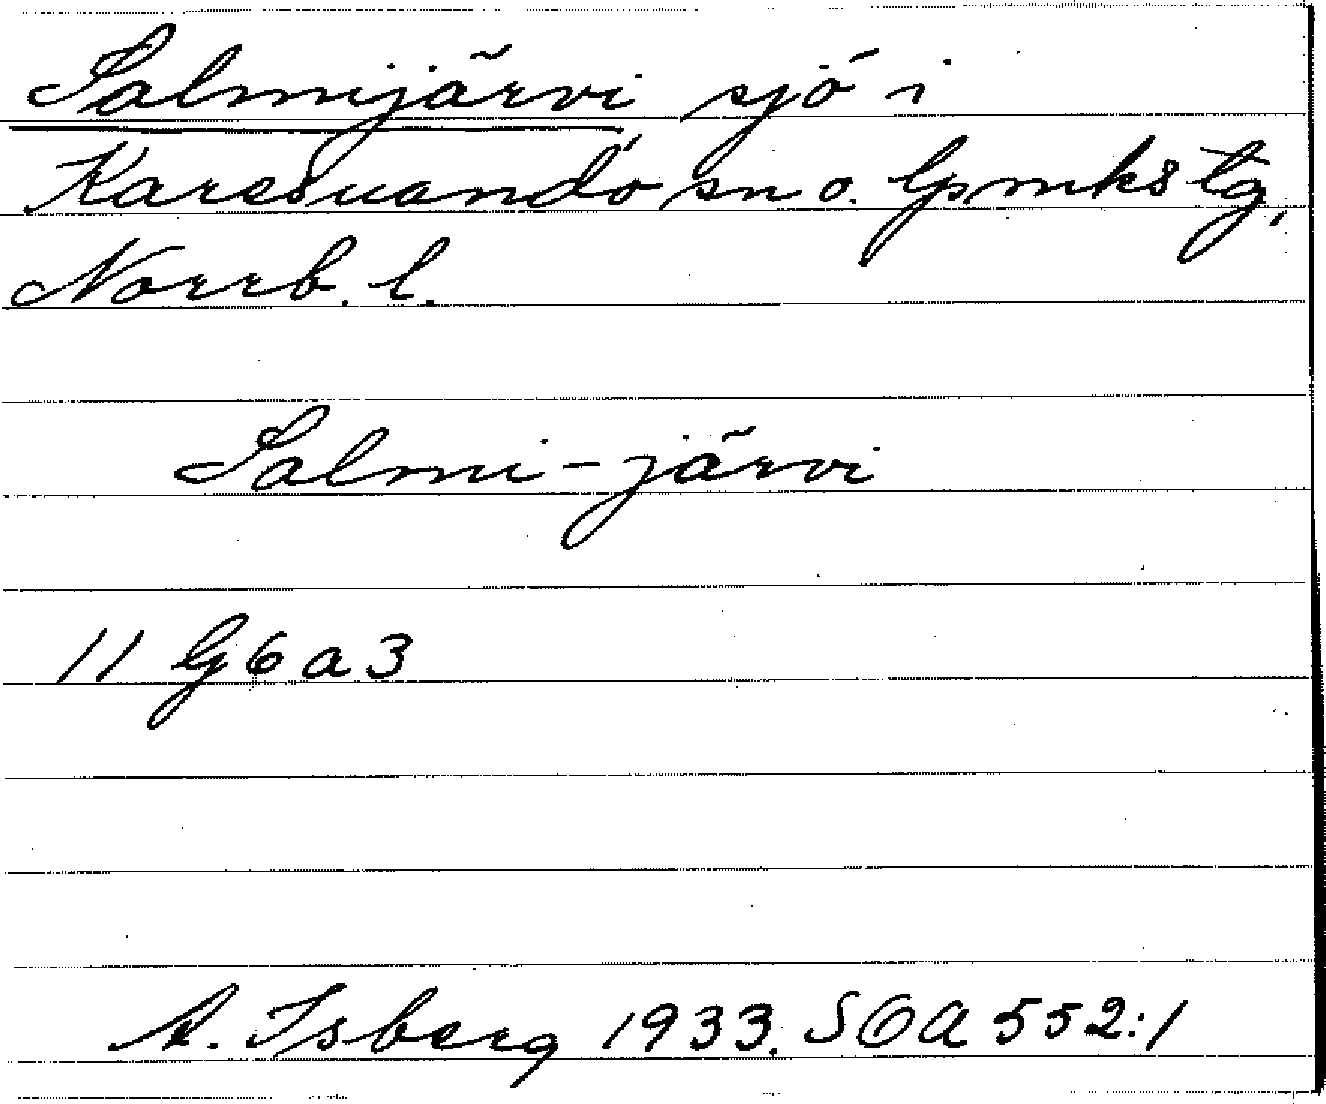 Salmijärvi sjö i
Karesuando sn o. lpmks tg,
Norrb. l.
Salmi-järvi
11 G 6 a 3
A. Isberg 1933. SOA 552:1